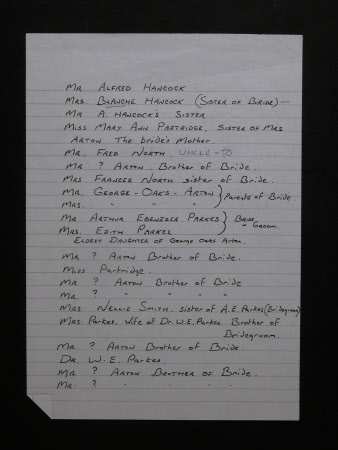 Mr Alfred Hancock
Mrs. Blanche Hancock (Sister of Bride) —
Mr A. Hancock's Sister
Miss Mary Ann Partridge, Sister of Mrs
Arton The bride's Mother
Mr. Fred North, Uncle - to
Mr ? Arton. Brother of Bride.
Mrs Frances North sister of Bride.
Mr. George - Oaks - Arton } Parents of Bride.
Mrs. " " "
Mr Arthur Ebenezer Parkes } Bride
Mrs. Edith Parkes " Groom.
Eldest Daughter of George Oaks Arton.
Mr ? Arton Brother of Bride.
Miss Partridge.
Mr ? Arton Brother of Bride
Mr. ? " " " "
Mrs. Nellie Smith, sister of A.E. Parkes (Bridegroom)
Mrs. Parkes, wife of Dr. W.E. Parkes Brother of
Bridegroom.
Mr. ? Arton Brother of Bride.
Dr. W.E. Parkes.
Mr ? Arton Brother of Bride.
Mr. ? " " " "